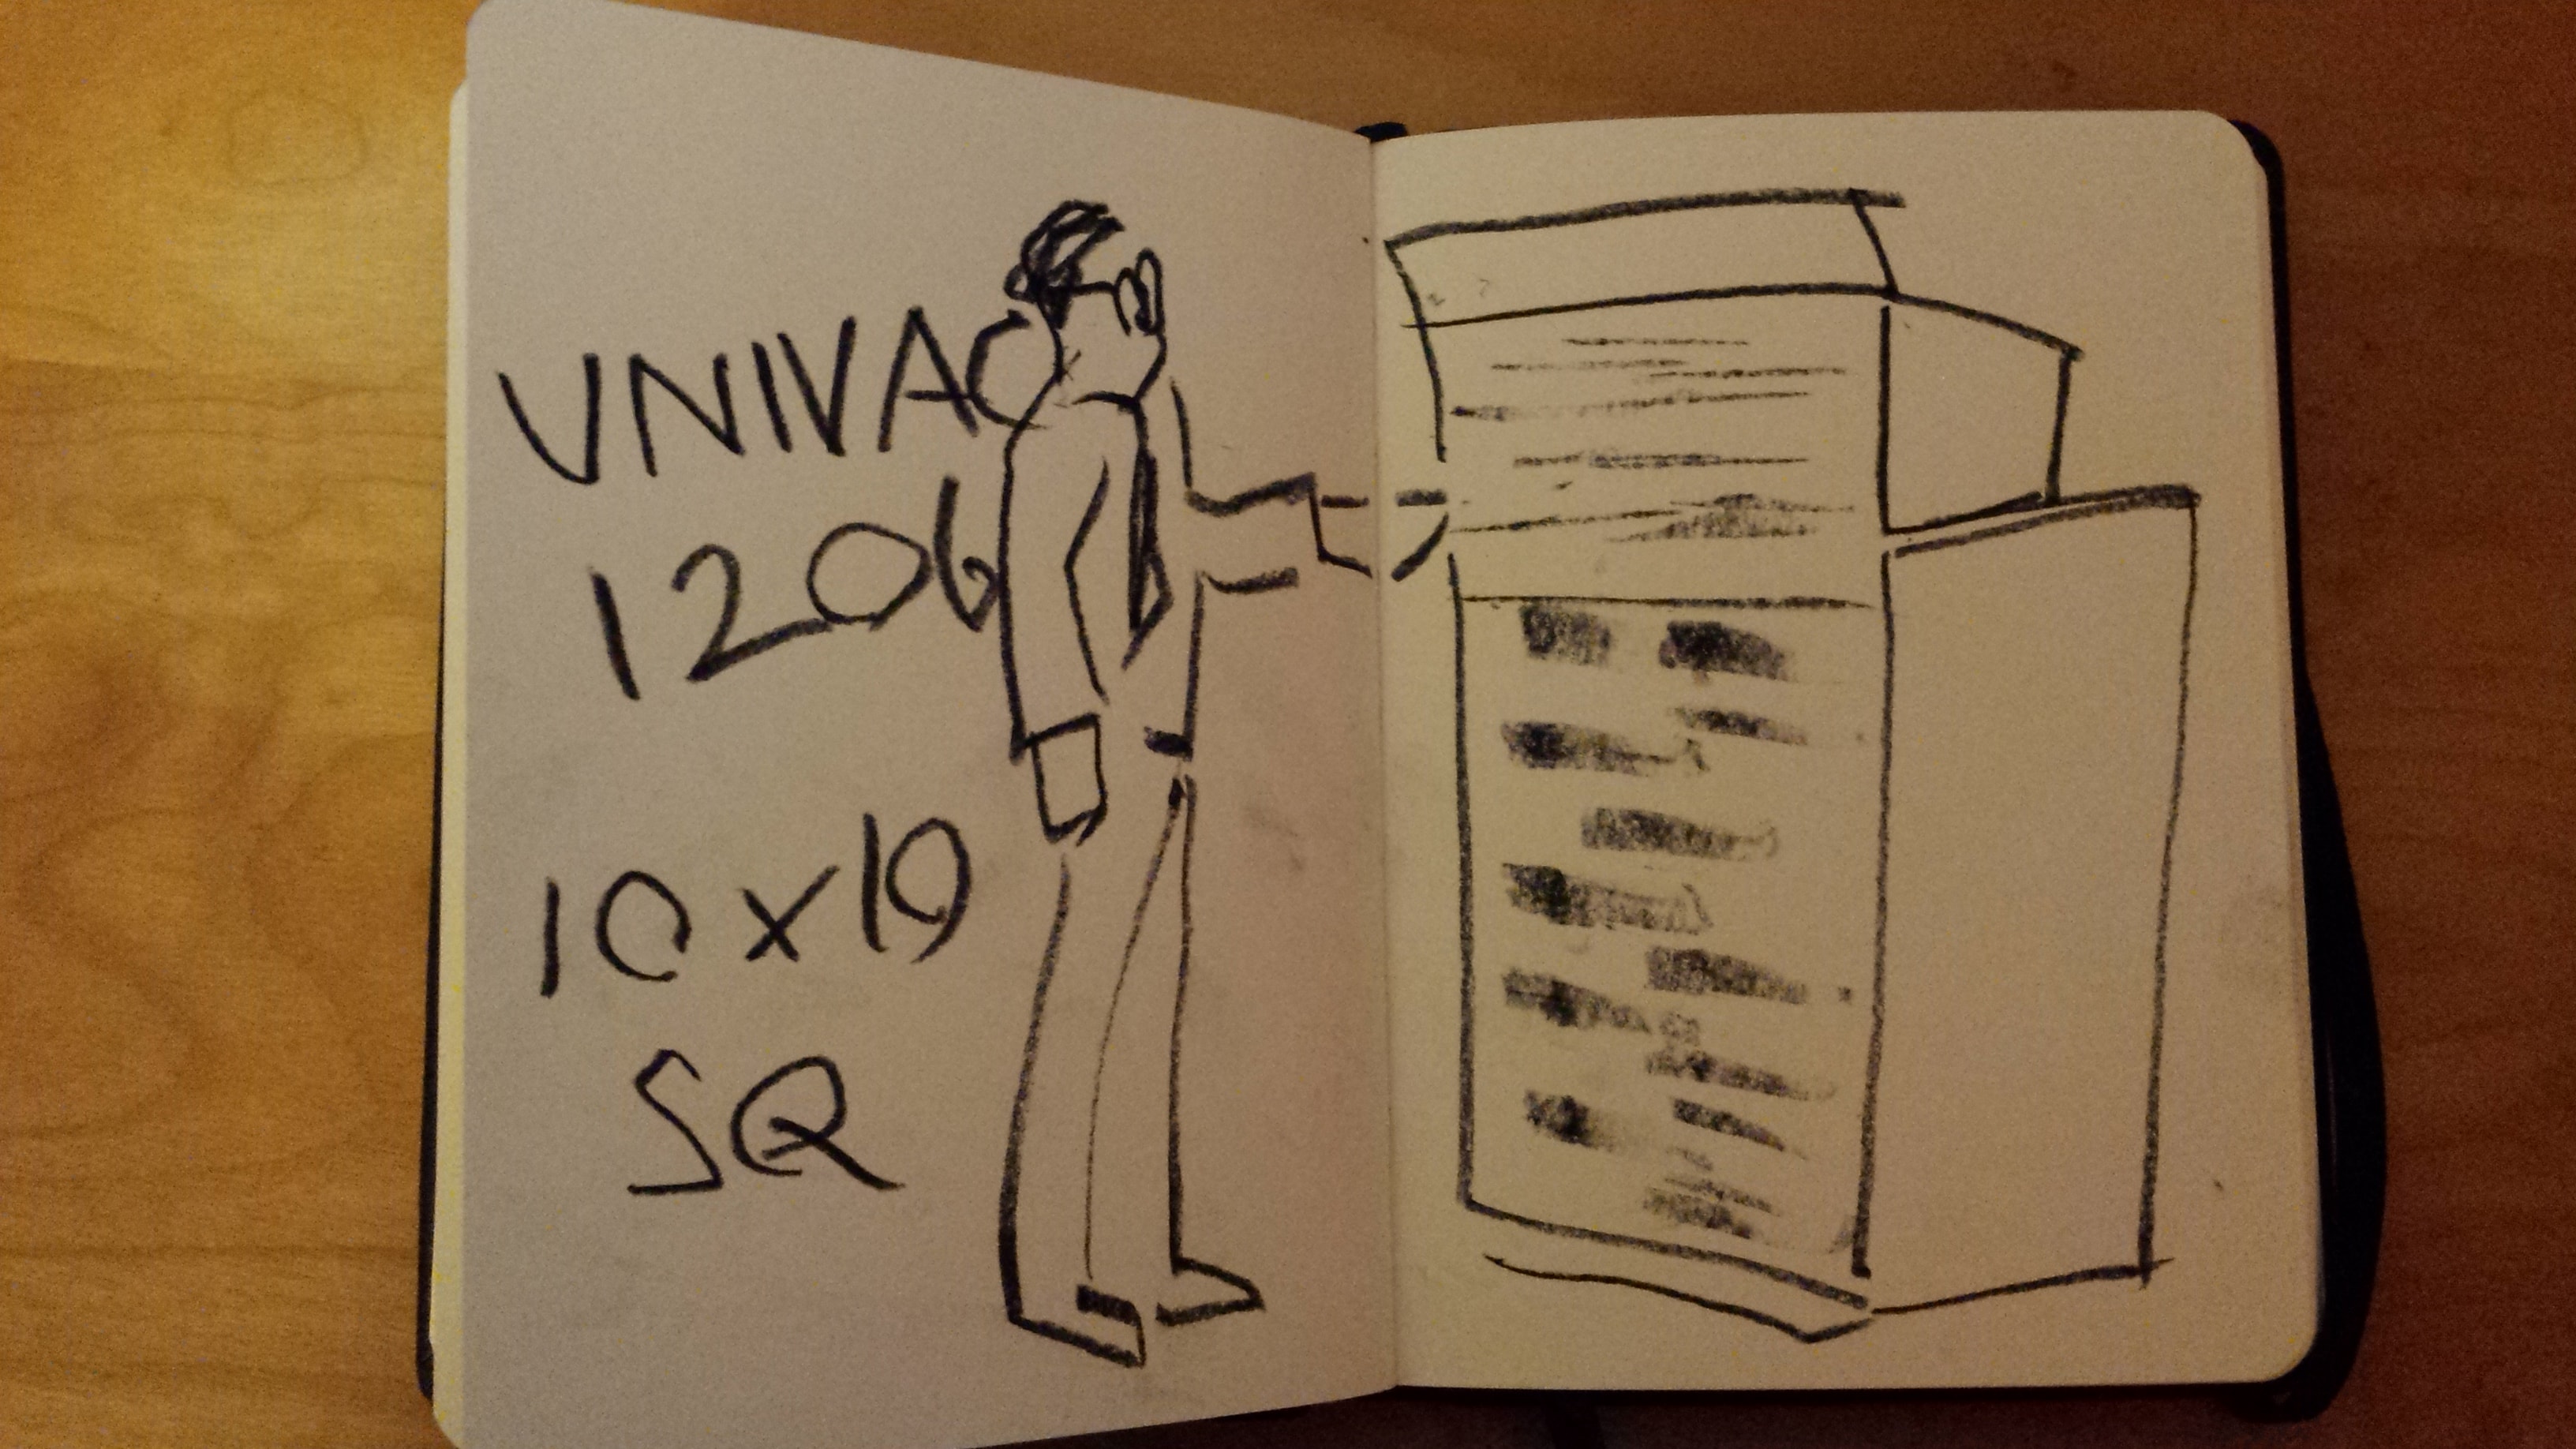 UNIVAC
1206
10x10
SQ